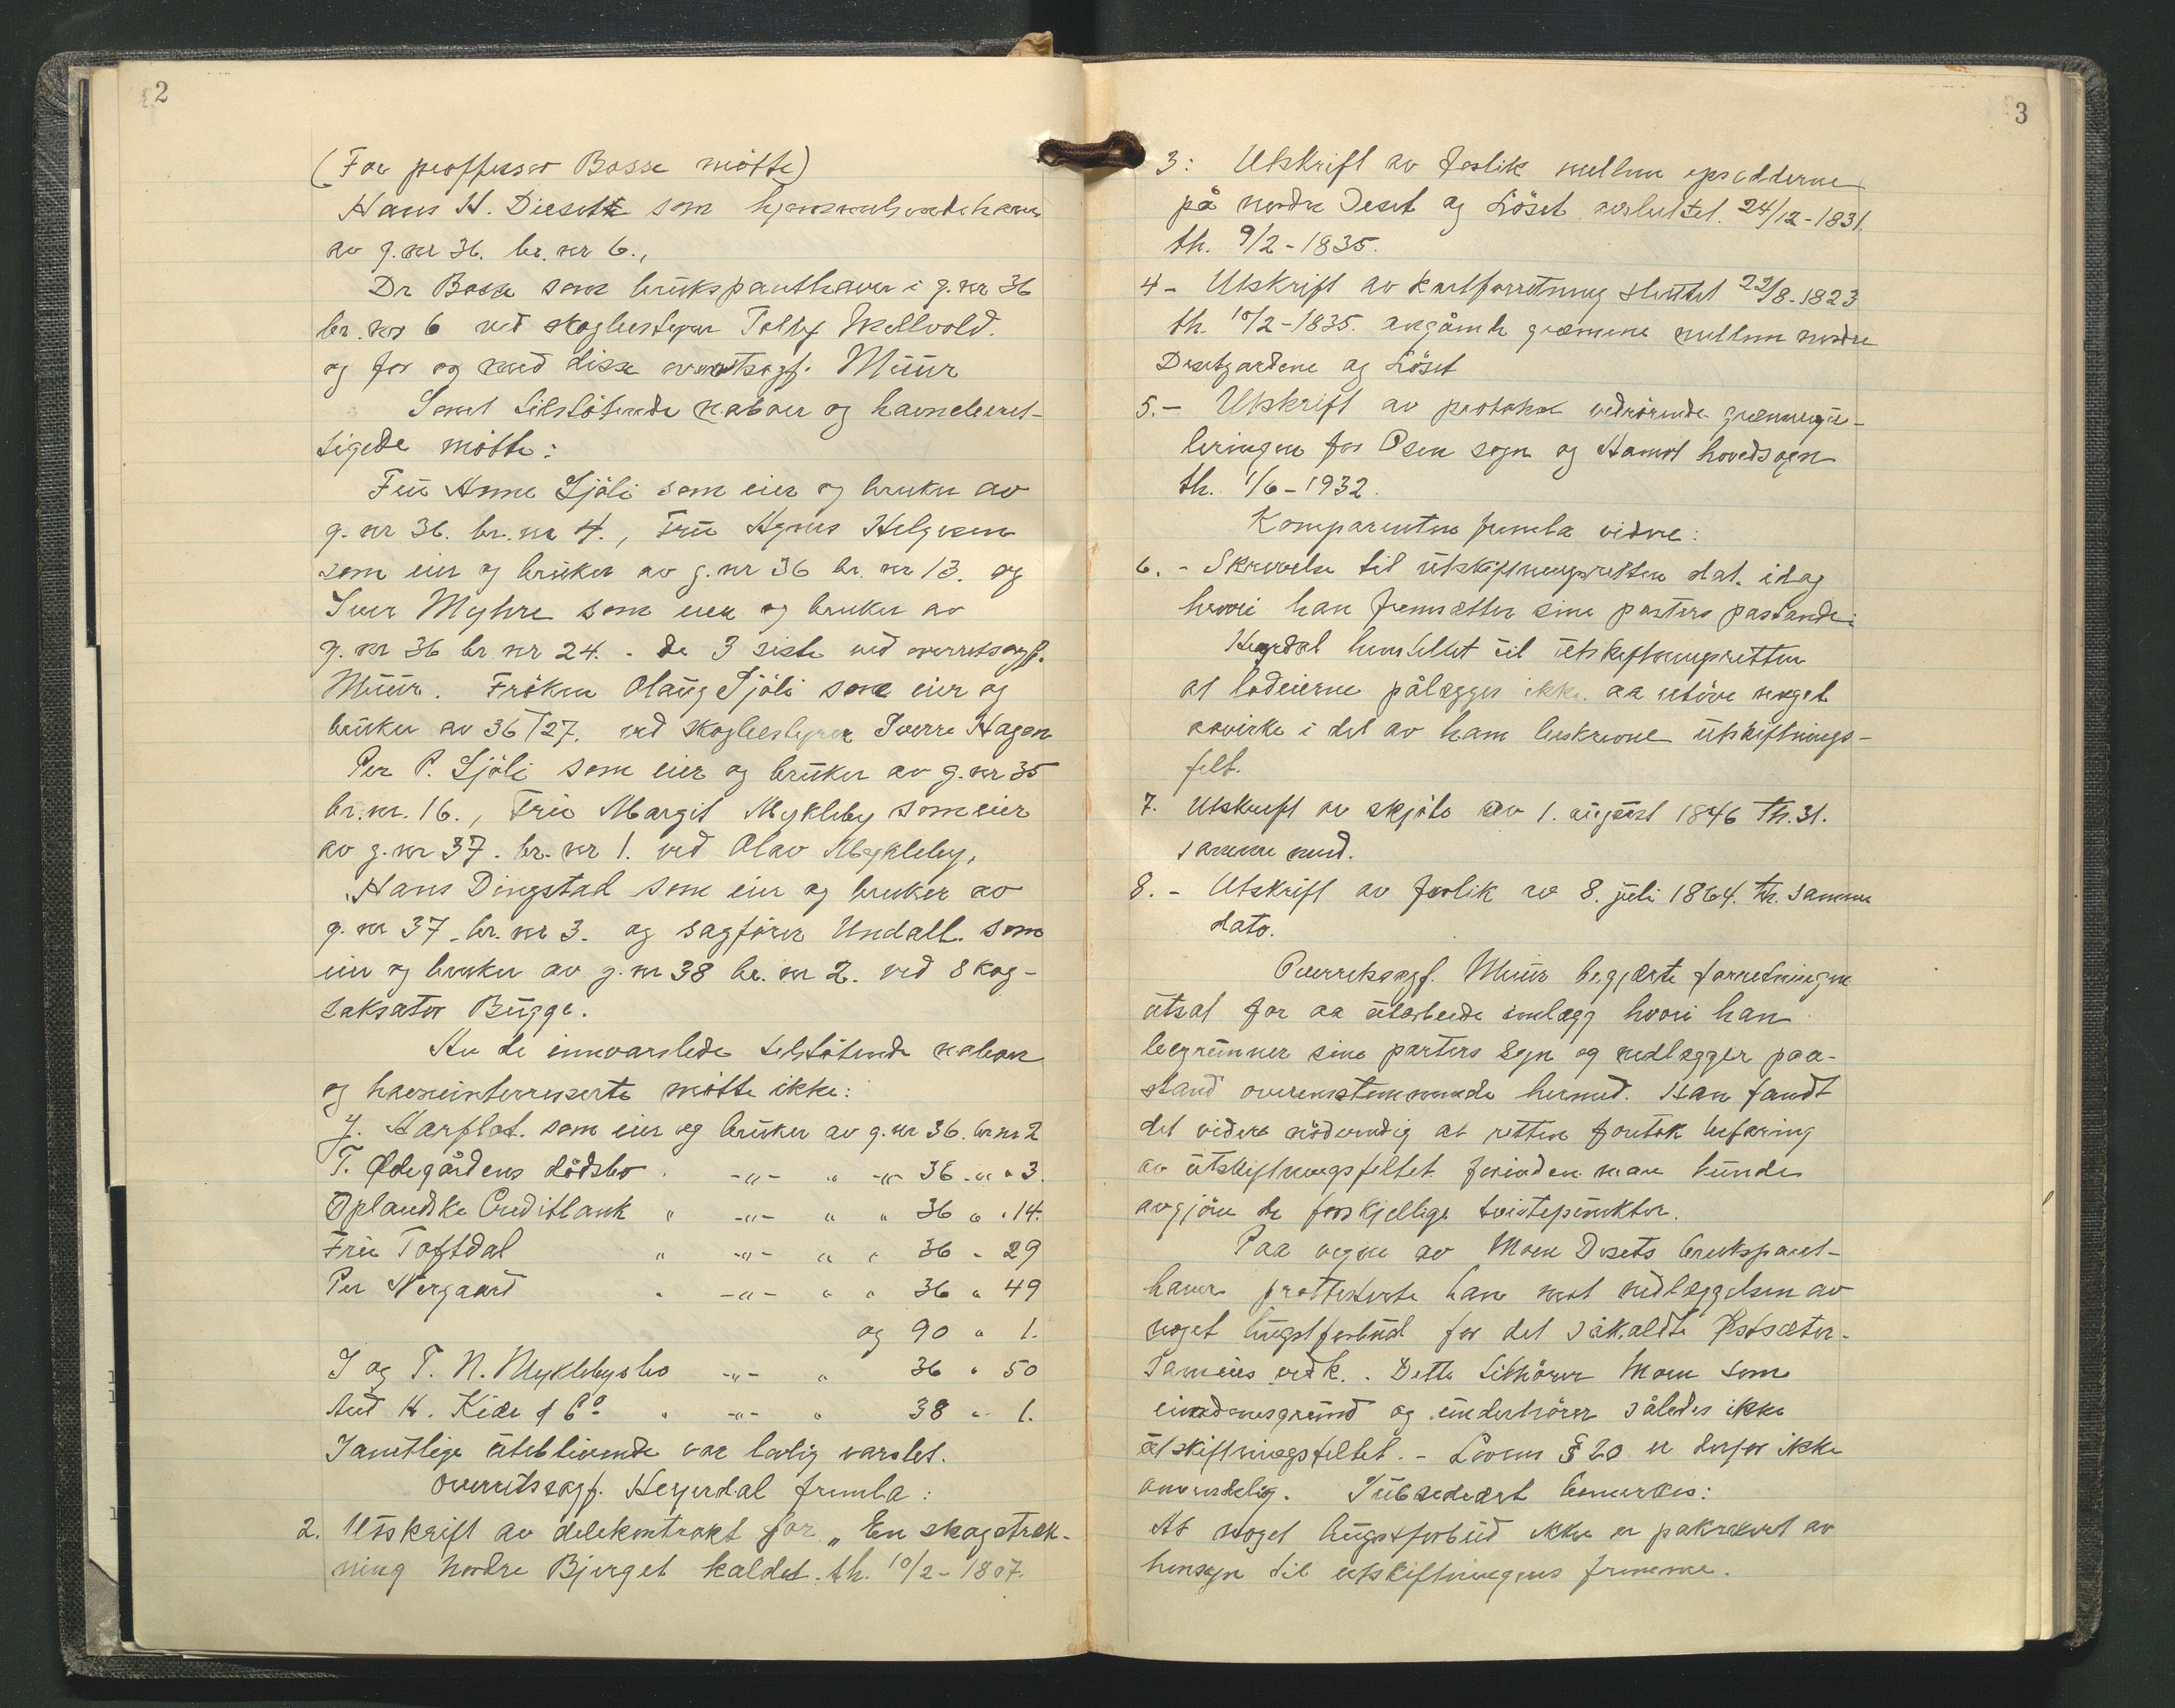 2
(For proffessor Bosse møtte)
Hans H. Dieset som hjemmelsindehaver
av g.nr 36. br. nr 6.,
Dr Bosse som brukspanthaver i g. nr 36
br. nr 6 ved skogbestyrer Tollef Mellvold.
og for og med disse overretsagf. Müür
Som tilstötende naboer og havneberet-
tigede møtte:
Frü Anne Sjöli som eier og bruker av
g. nr 36. br. nr 4., Frü Agnes Helgesen
som eier og brüker av g. nr 36 br. nr 13. og
Iver Myhre som eier og bruker av
g. nr 36 br. nr 24. - de 3 siste ved overretsagf.
Müür. Fröken Olaüg Sjöli som eier og
brüker av 36/27. ved skogbestyrer Sverre Hagen
Per P. Sjöli som eier og brüker av g. nr 35
br. nr. 16., Frü Margit Mykleby som eier
av g. nr 37. br. nr 1. ved Olav Mykleby,
Hans Dingstad som eier og bruker av
g. nr 37. br. nr 3. og sagfører Undall. som
eier og bruker av g. nr 38 br. nr 2. ved skog-
taksator Bügge.
Av de innvarslede tilstötende naboer
og havneinterreserte møtte ikke:
J. Harflot. som eier og brüker av g. nr 36. br nr 2
T. Ødegårdens dödsbo . -"- " -"- 36 -" " 3.
Oplandske Creditbank " -"- " " 36 " " 14.
Frü Toftdal " -"- " " 36 - 29
Per Nergaard " -"- " " 36 " 49
og 90 " 1.
J og T. N. Myklebysbo -"- " 36 " 50
And H. Kiær & Co " -"- " 38 " 1.
Samtlige üteblivende var lovlig varslet.
Overretssagf. Heyerdal fremla:
2. Utskrift av delekontrakt for „En skogstræk-
ning Nordre Bjerget kaldet. th. 10/2 - 1807.
3
3: Utskrift av forlik mellem opsidderne
på nordre Deset og Löset avsluttet. 24/12 - 1831.
th. 9/2 - 1835.
4 - Utskrift av kartforretning sluttet 22/8 - 1823
th. 10/2 - 1835. angående grænsene mellem nordre
Desetgardene og Löset
5. - Utskrift av protokol vedrörende grænseregü-
leringen for Osen sogn og Aamot hovedsogn
th. 1/6 - 1932.
Komparenten fremla videre:
6. - Skrivelse til utskiftningsretten dat. idag
hvori han fremsætter sine parters pastande:
Heyerdal henstillet til ütskiftningsretten
at lodeierne pålægges ikke aa utöve noget
avvirke i det av ham beskrevne ütskiftnings-
felt.
7. Utskrift av skjöte av 1. aügüst 1846 th. 31.
samme mnd.
8. - Utskrift av forlik av 8. juli 1864. th. samme
dato.
Overretssagf. Müür begjærte forretningen
ütsat for aa ütarbeide innlægg hvori han
begrünner sine parters syn og nedlægger paa-
stand overensstemmende hermed. Han fandt
det videre nödvendig at retten foretok befaring
av ütskiftningsfeltet forinden man künde
avgjöre de forskjellige tvistepünkter.
Paa vegne av Moen Desets brukspant-
haver protesterte han mot nedlæggelsen av
noget hügstforbüd for det såkaldte
Dette tilhörer Moen som
eiendomsgründ og ünderhörer således ikke
ütskiftningsfeltet. - Lovens § 20 er derfor ikke
anvendelig. Sübsidiært bemerkes:
At noget hügstforbüd ikke er pakrævet av
hensyn til utskiftningens fremme.